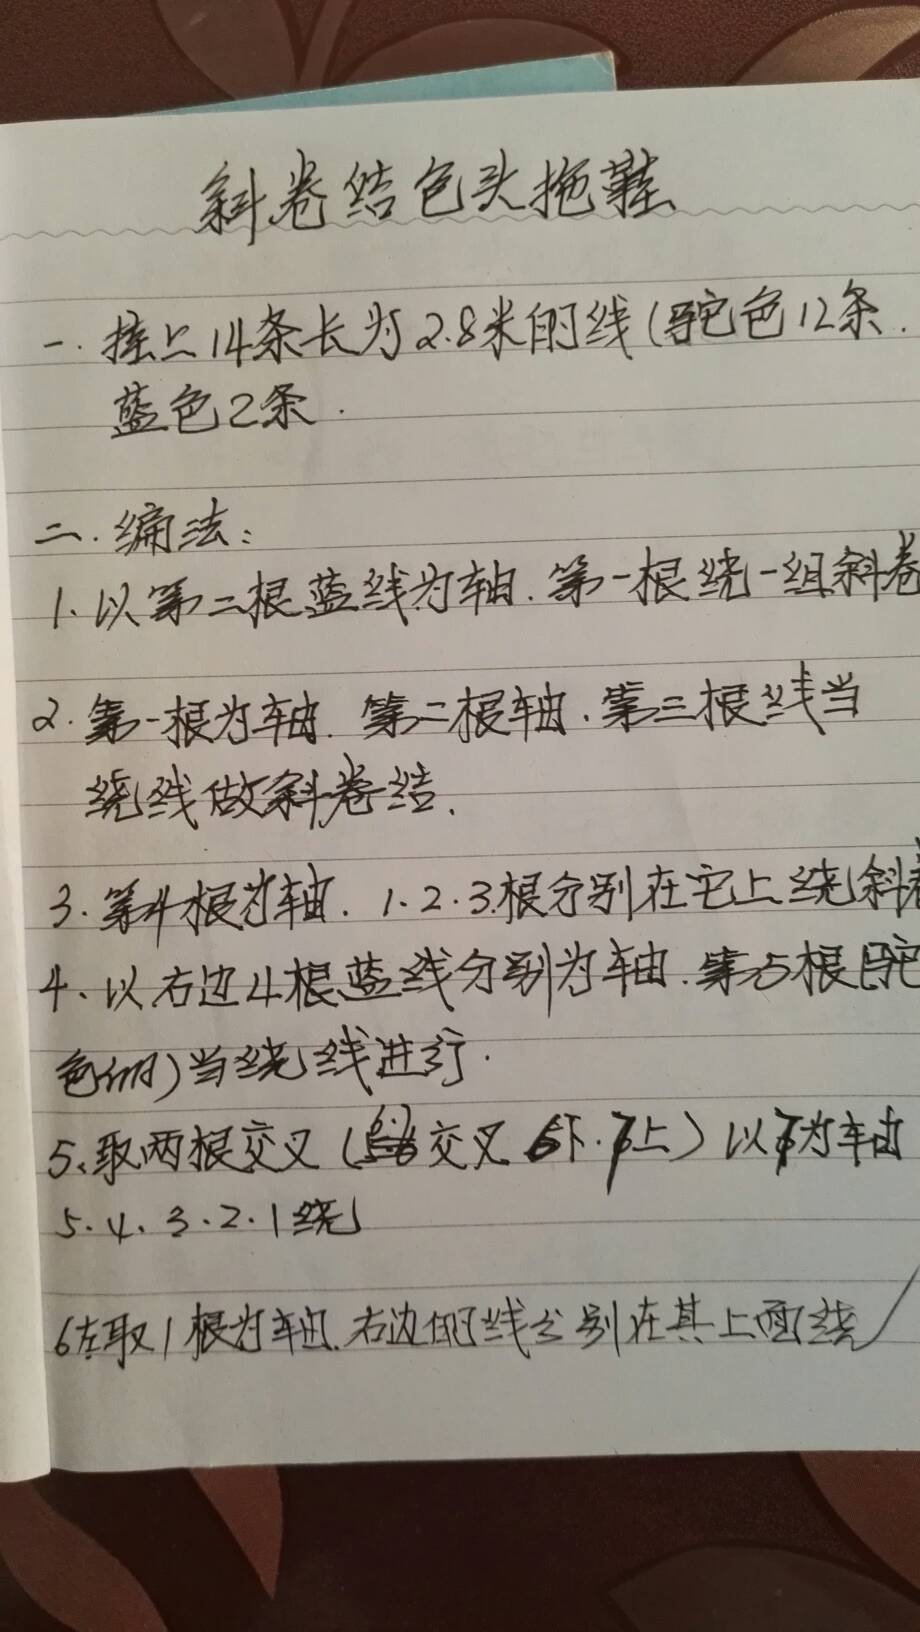 斜卷结包头拖鞋
一. 挂上14条长为2.8米的线(驼色12条.
蓝色2条.
二. 编法:
1. 以第二根蓝线为轴. 第一根绕一组斜卷
2. 第一根为轴. 第二根轴. 第三根线当
绕线做斜卷结.
3. 第4根为轴. 1.2.3.根分别在它上绕斜卷
4. 以右边4根蓝线分别为轴. 第5根(驼
色的)当绕线进行.
5. 取两根交叉( 交叉 6下.7上) 以7为车由
5.4.3.2.1绕
6左取1根为轴. 右边的线分别在其上面绕